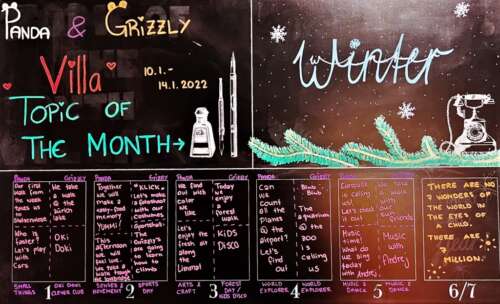 PANDA & GRIZZLY
Villa
10.1.-
14.1.2022
TOPIC OF
THE MONTH
Winter
PANDA
GRIZZLY
Our first
walk from
the week
leads us
to
We take
a walk
@ the
with
us
Who is
faster?
Let's play
with
Cars
OKI
DOKI
PANDA
GRIZZLY
Together
we will
make a
easy-food
memory
YUMMI
"KLICK"
Let's make
a
with our
costumes
This
afternoon
we will
The
Grizzly's
are going
to learn
how to
climb
PANDA
GRIZZLY
We
find out
which
color
we
like
Today
we
enjoy
the
forest
Let's
enjoy the
fresh air
along
the
Limmat
KIDS
DISCO
PANDA
GRIZZLY
Can
we
count
all the
planes
@ the
airport?
Let's
find
out
Blub
Blub
The
aquarium
@ the
zoo
is
calling
us
is calling
us
Let's check
it out
We
with
our
friends
Music
time!
What do
we sing
with
Andrej
Music
&
Dance
with
Andrej
THERE ARE NO
7 WONDERS OF
THE WORLD IN
THE EYES OF
A CHILD.
THERE ARE
7
MILLION.
SMALL
THINGS
1
OKI DOKI
CLEVER CLUB
SENSES &
MOVEMENT
2
SPORTS
DAY
ARTS &
CRAFT
3
FOREST
DAY/
KIDS DISCO
WORLD
EXPLORER
4
WORLD
EXPLORER
MUSIC &
DANCE
5
MUSIC &
DANCE
6/7